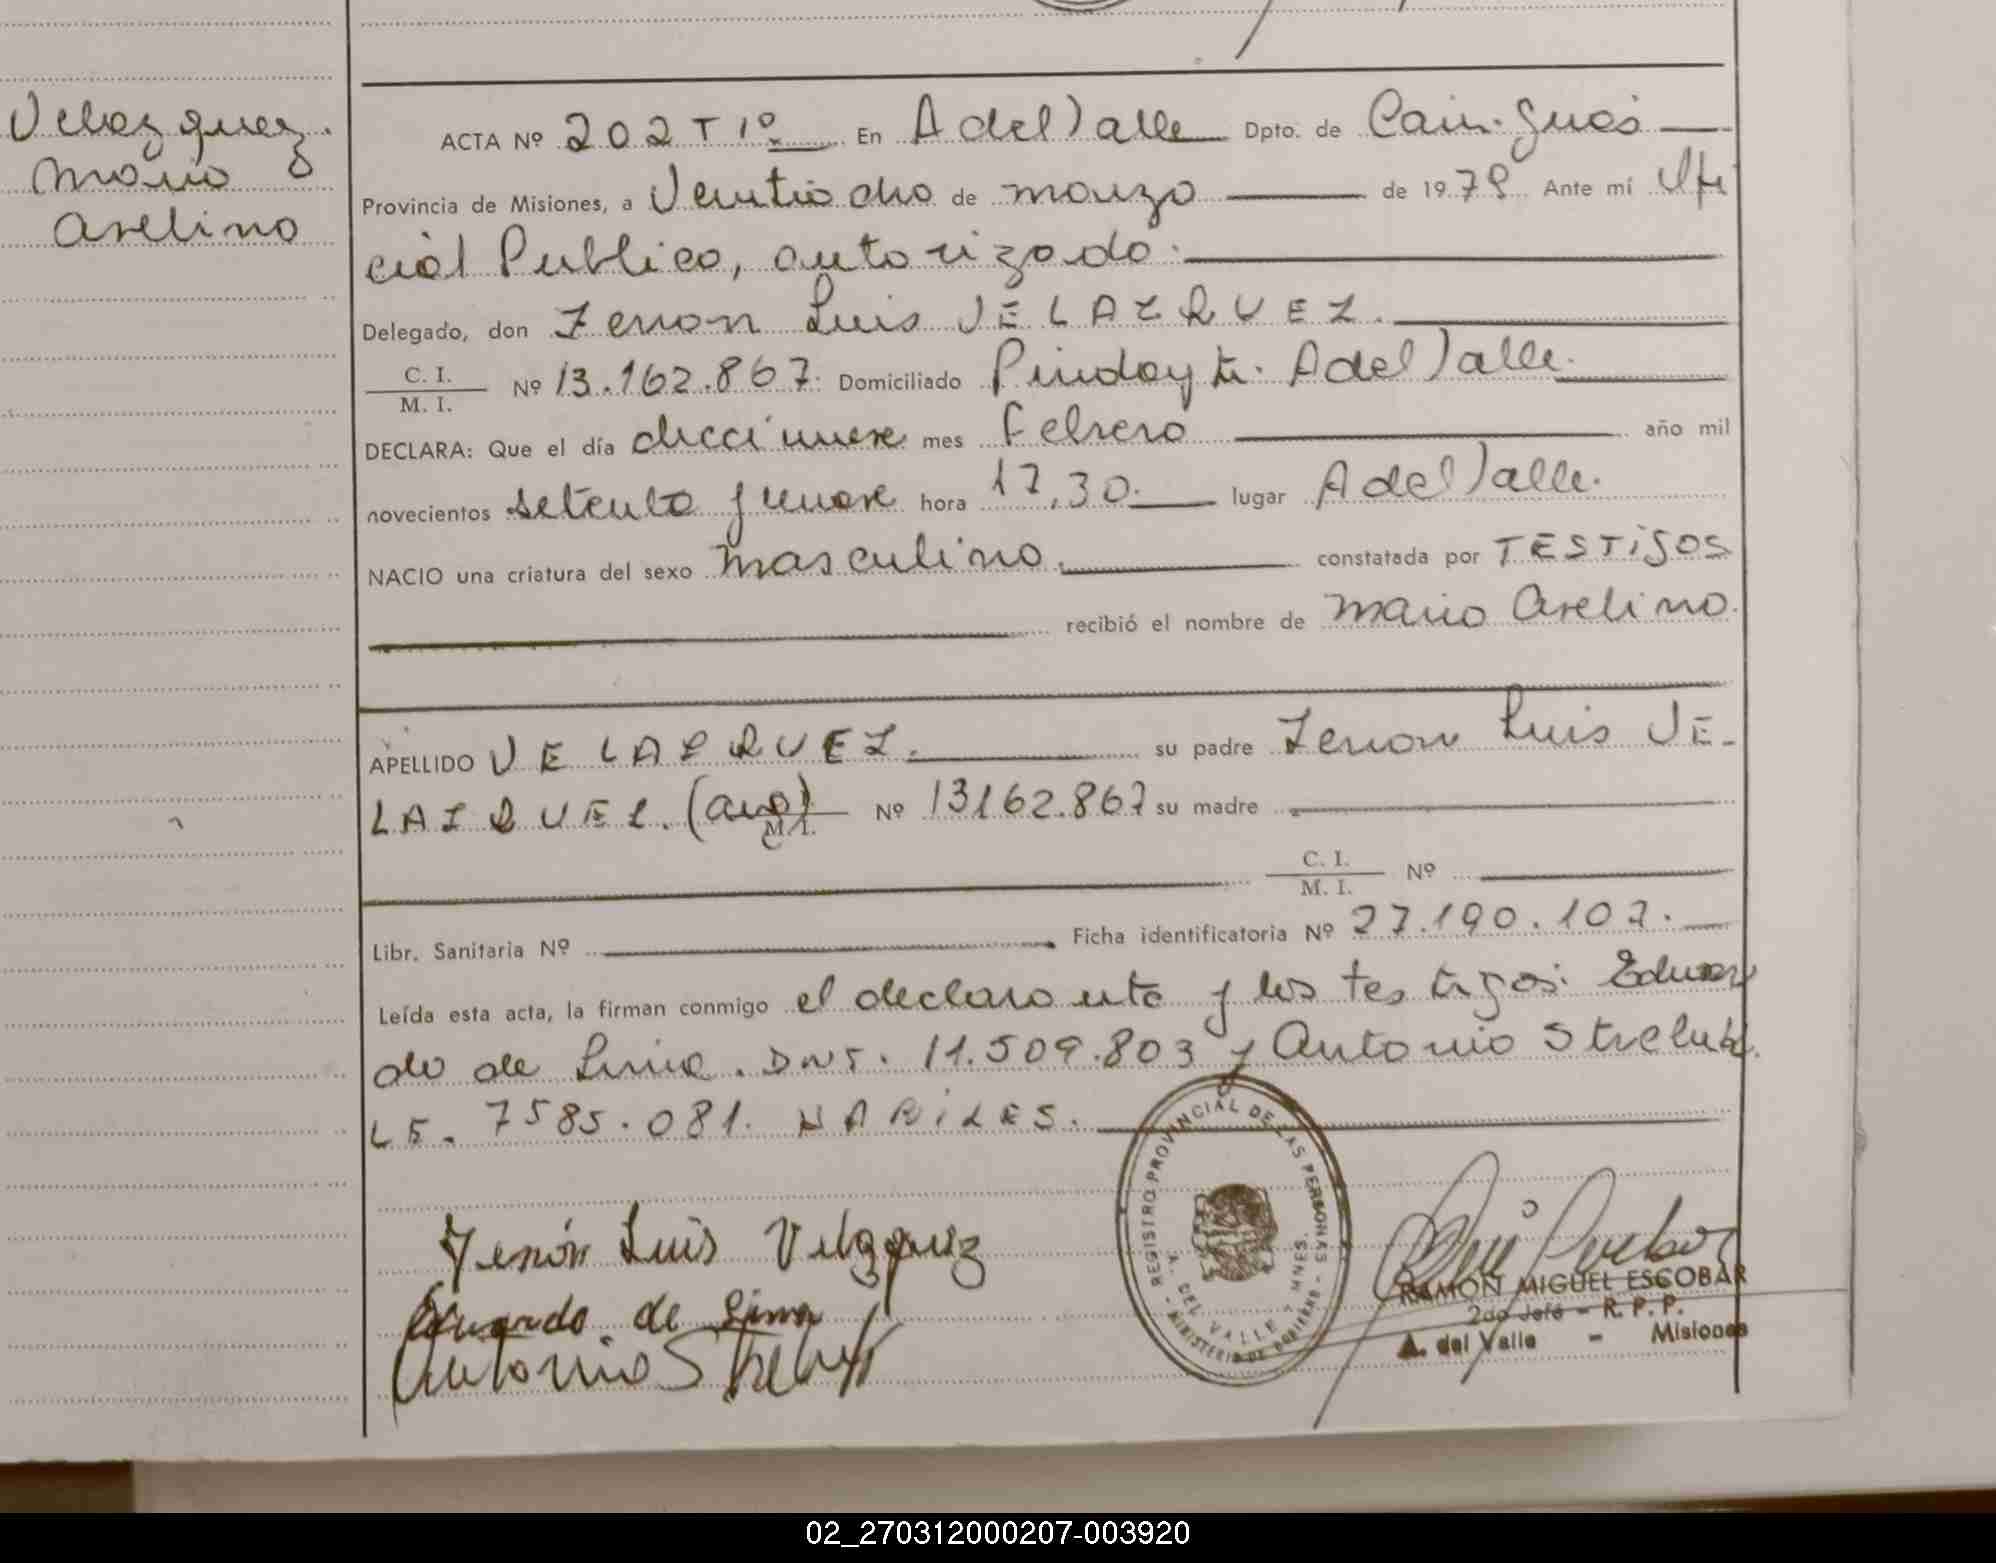 Velazquez.
Mario
Avelino
ACTA Nº 202 T Iº En A del Valle Dpto. de Cain-guas
Provincia de Misiones, a Veintiocho de marzo de 1979 Ante mí Ofi
cial Publico, autorizado.
Delegado, don Zenon Luis VELAZQUEZ.
C. I.
M. I.
Nº 13.162.867. Domiciliado Pindayti. A del Valle.
DECLARA: Que el día diecinueve mes Febrero año mil
novecientos setenta y nueve hora 17,30. lugar A del Valle.
NACIO una criatura del sexo masculino. constatada por TESTiGOS
recibió el nombre de Mario Avelino.
APELLIDO VELAZQUEZ. su padre Zenon Luis VE-
LAZQUEZ. (arg) M. I. Nº 13162.867 su madre
C. I.
M. I.
Nº
Libr. Sanitaria Nº Ficha identificatoria Nº 27.190.107.
Leída esta acta, la firman conmigo el declarante y los testigos: Eduar
do de Lima. DNI. 11.509.803 y Antonio
LE. 7585.081. HABiLES.
Zenón Luis Velazquez
Eduardo de Lima
Antonio
REGISTRO PROVINCIAL DE LAS PERSONAS
A. DEL VALLE - MNES.
MINISTERIO DE GOBIERNO
RAMON MIGUEL ESCOBAR
2do Jefe - R. P. P.
A. del Valle - Misiones
02_270312000207-003920